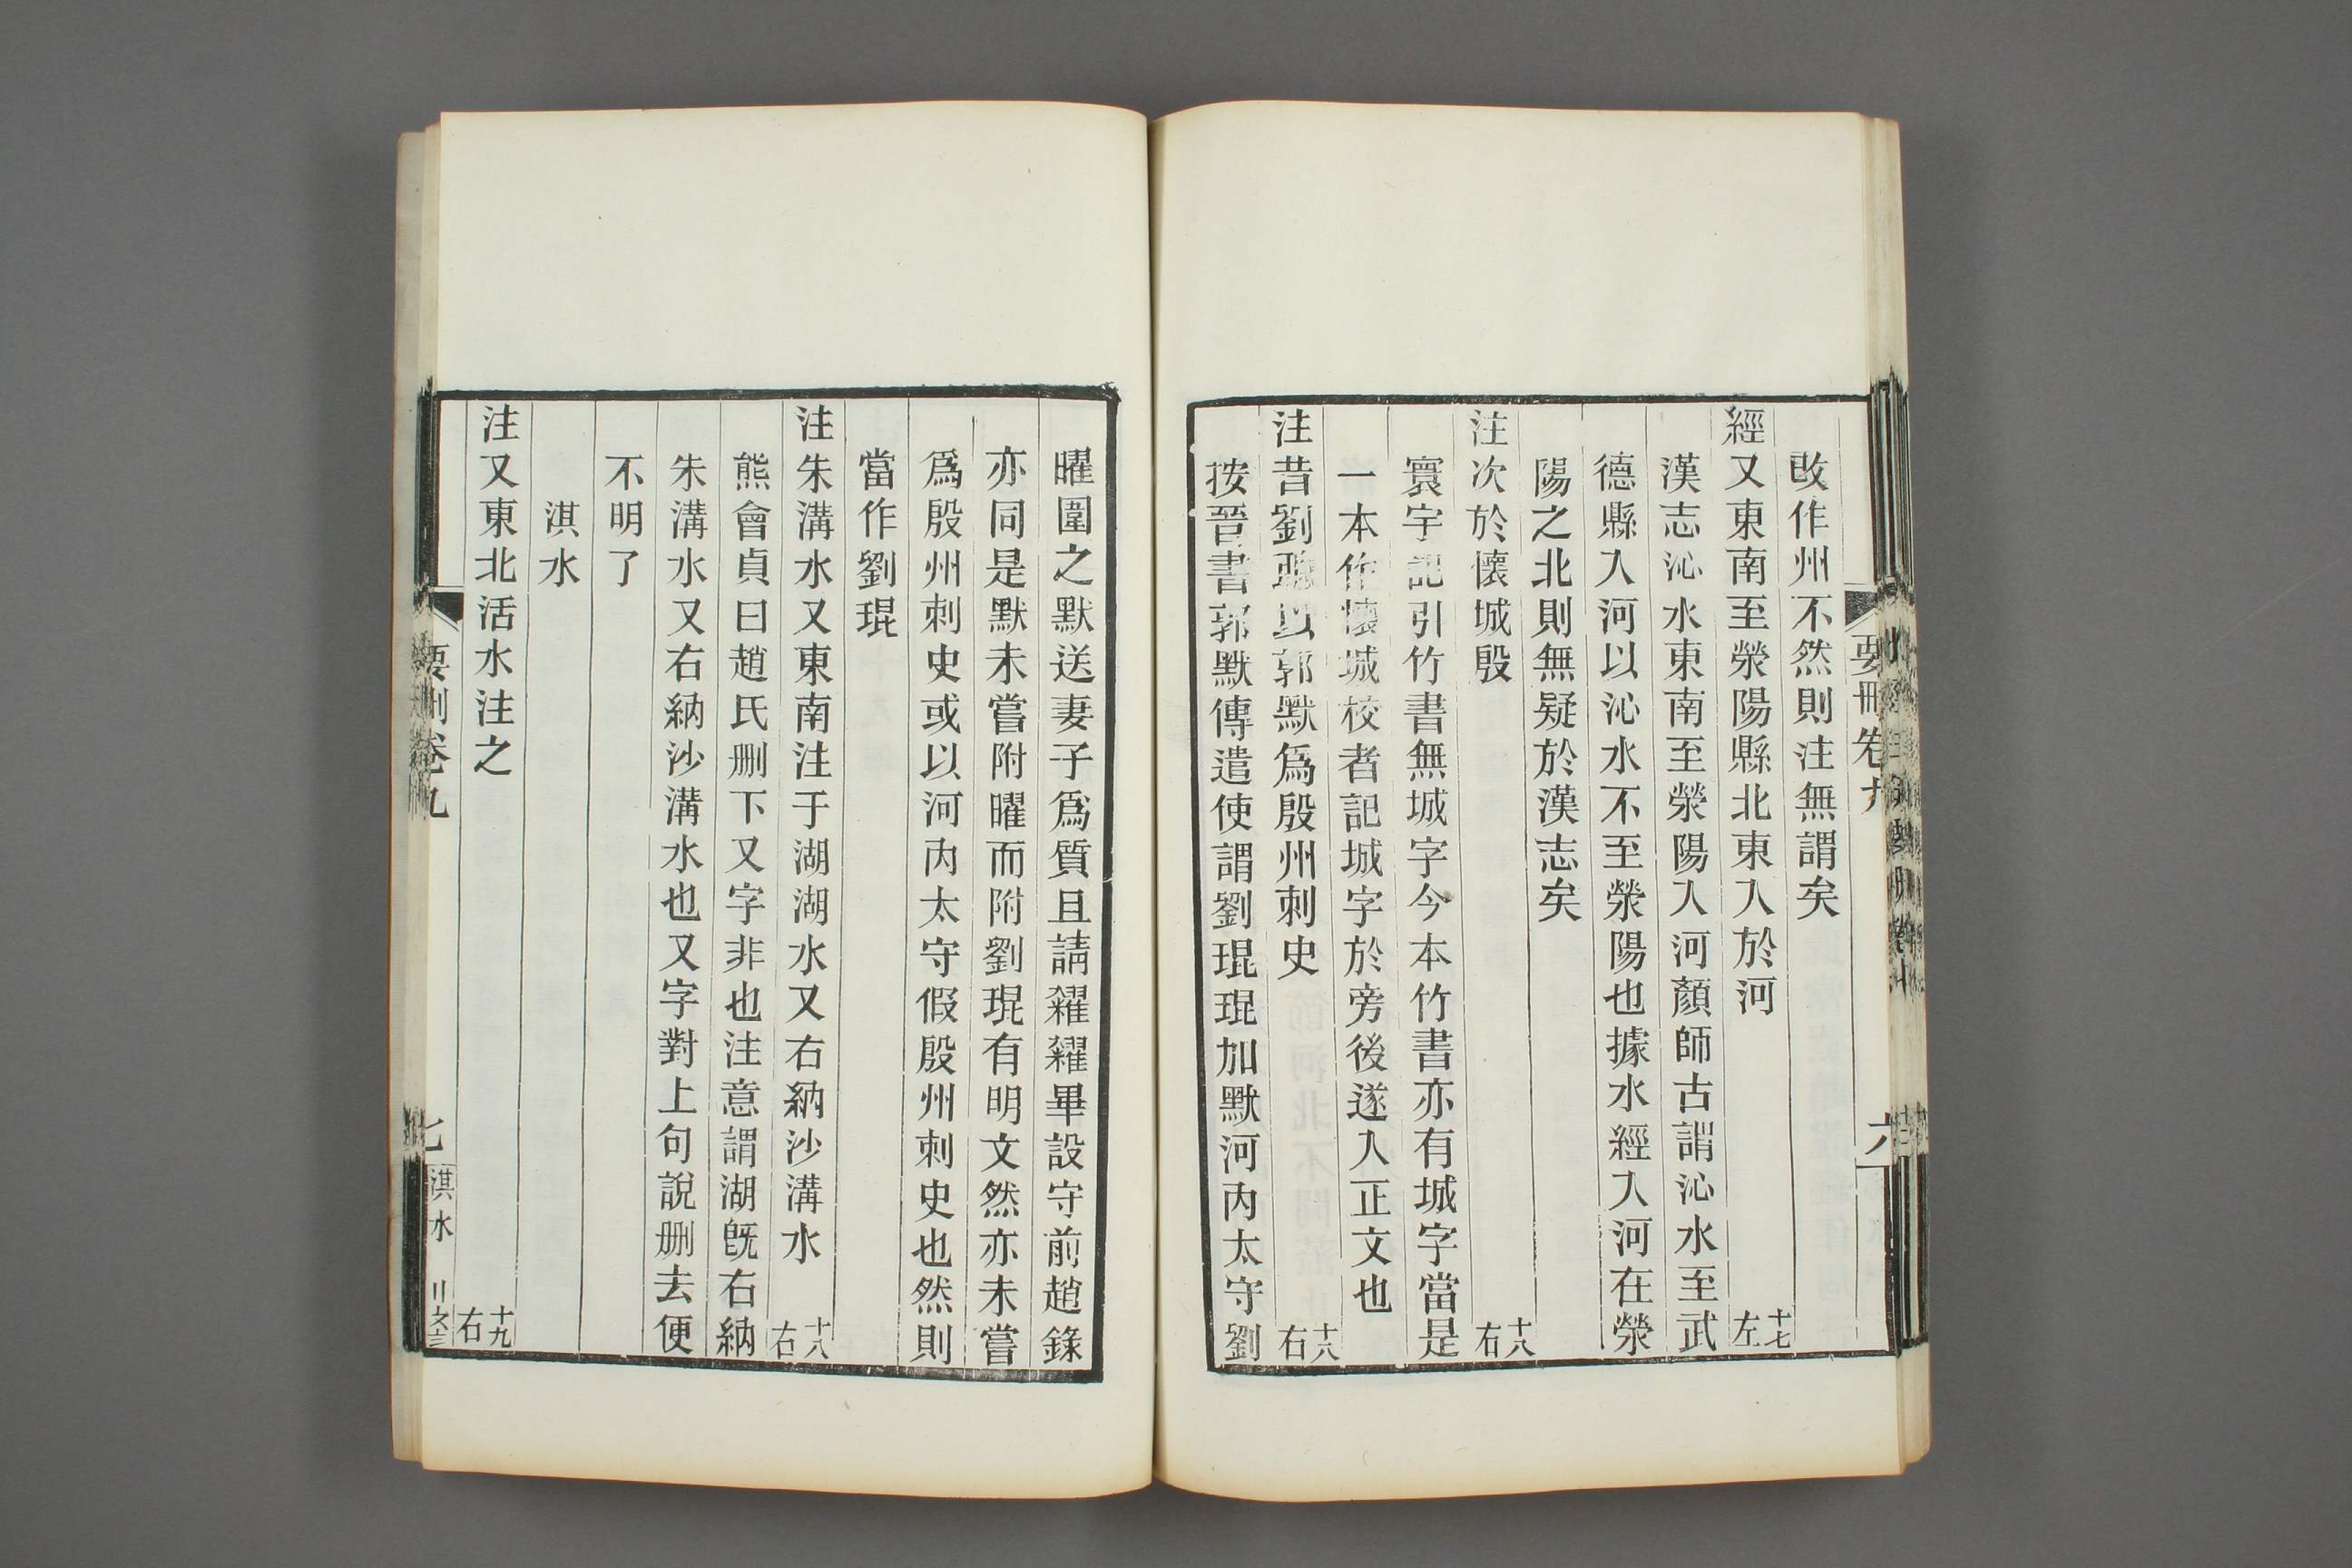 改作州不然則注無謂矣
經又東南至滎陽縣北東入於河 十七左
漢志沁水東南至滎陽入河顏師古謂沁水至武
德縣入河以沁水不至滎陽也據水經入河在滎
陽之北則無疑於漢志矣
注次於懷城殷 十八右
寰宇記引竹書無城字今本竹書亦有城字當是
一本作懷城校者記城字於旁後遂入正文也
注昔劉聰以郭默爲殷州刺史 十八右
按晉書郭默傳遣使謂劉琨琨加默河內太守劉
要刪卷九
六
曜圍之默送妻子爲質且請糴糴畢設守前趙錄
亦同是默未嘗附曜而附劉琨有明文然亦未嘗
爲殷州刺史或以河內太守假殷州刺史也然則
當作劉琨
注朱溝水又東南注于湖湖水又右納沙溝水 十八右
熊會貞曰趙氏刪下又字非也注意謂湖旣右納
朱溝水又右納沙溝水也又字對上句說刪去便
不明了
淇水
注又東北活水注之 十九右
要刪卷九
七
淇水